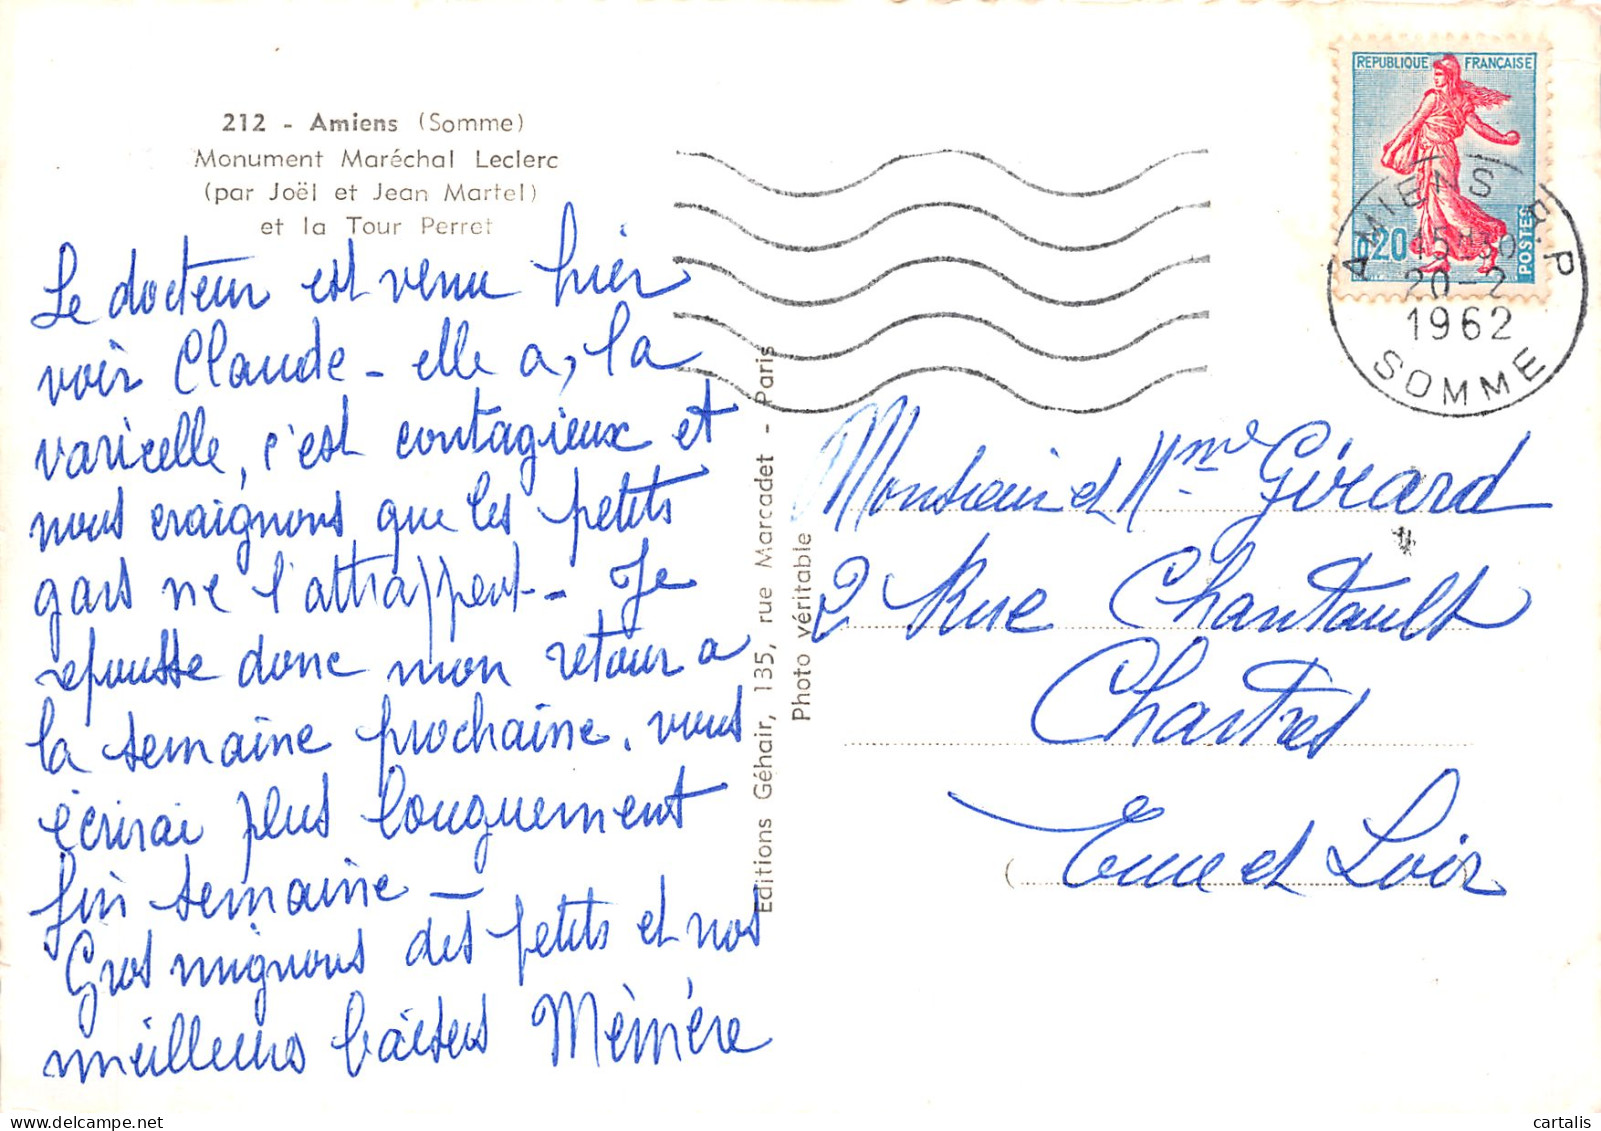 212 - Amiens (Somme)
Monument Maréchal Leclerc
(par Joël et Jean Martel)
et la Tour Perret
Le docteur est venu hier
voir Claude - elle a, la
varicelle, c'est contagieux et
nous craignons que les petits
gars ne l'attrappent - Je
repousse donc mon retour a
la semaine prochaine. vous
écrirai plus longuement
fin semaine -
Gros mignons des petits et nos
meilleurs baisers Mèmère
Editions Géhair, 135, rue Marcadet - Paris
Photo véritable
REPUBLIQUE FRANÇAISE
0,20
POSTES
AMIENS R.P
15H30
20-2
1962
SOMME
Monsieur et Mme Girard
2 Rue Chantault
Chartres
(Eure et Loir
cartalis